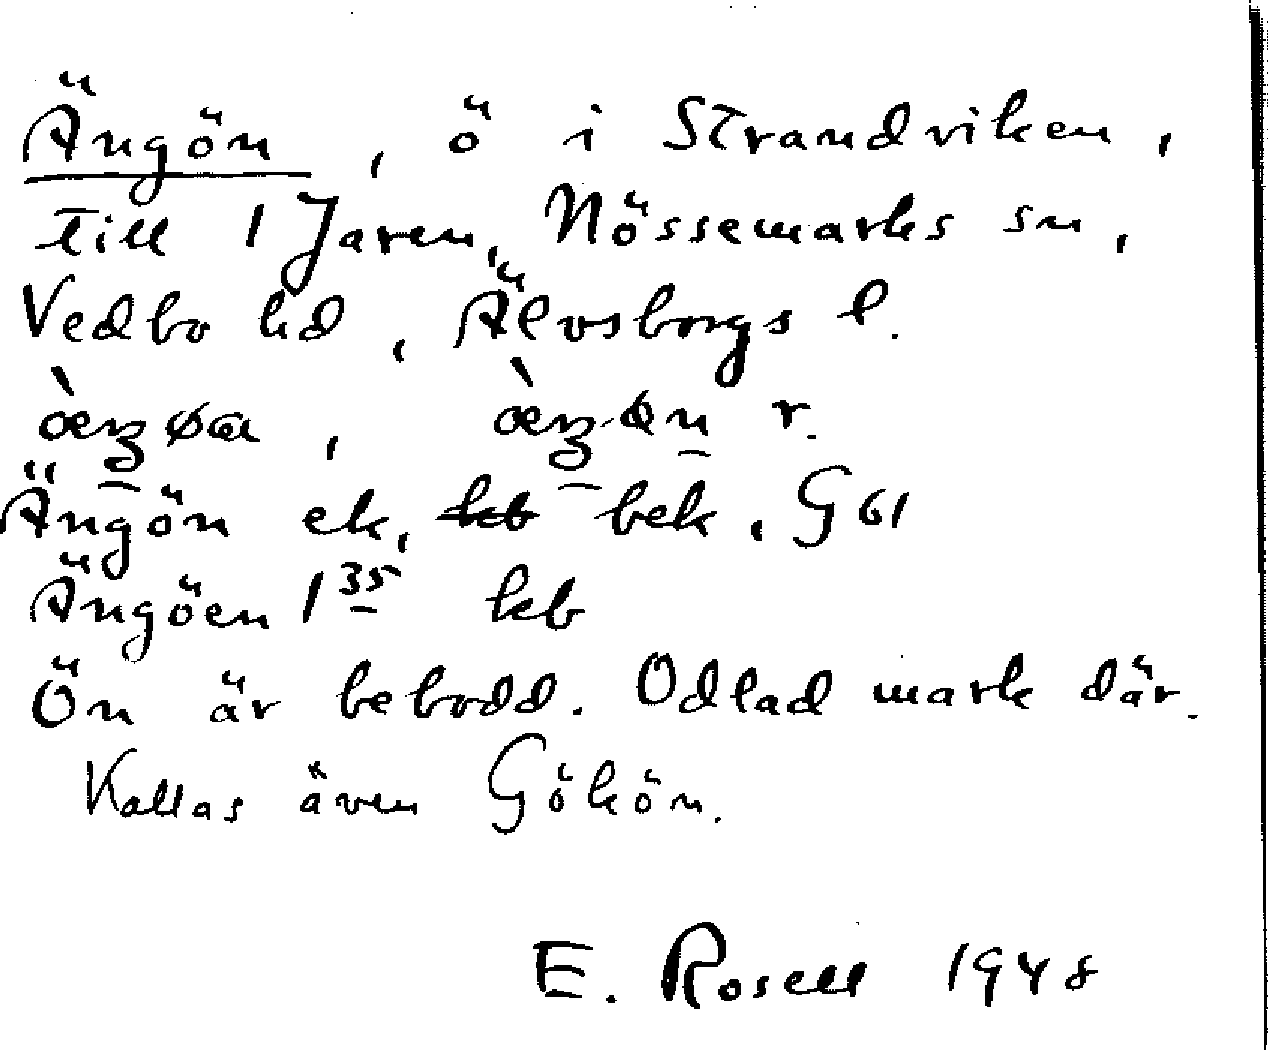 Ängön, ö i Strandviken,
till 1 Jaren, Nössemarks sn,
Vedbo hd, Älvsborgs l.
r.
Ängön ek, bek. G 61
Ängöen 1 35 kb
Ön är bebodd. Odlad mark där.
Kallas även Gökön.
E. Rosell 1948